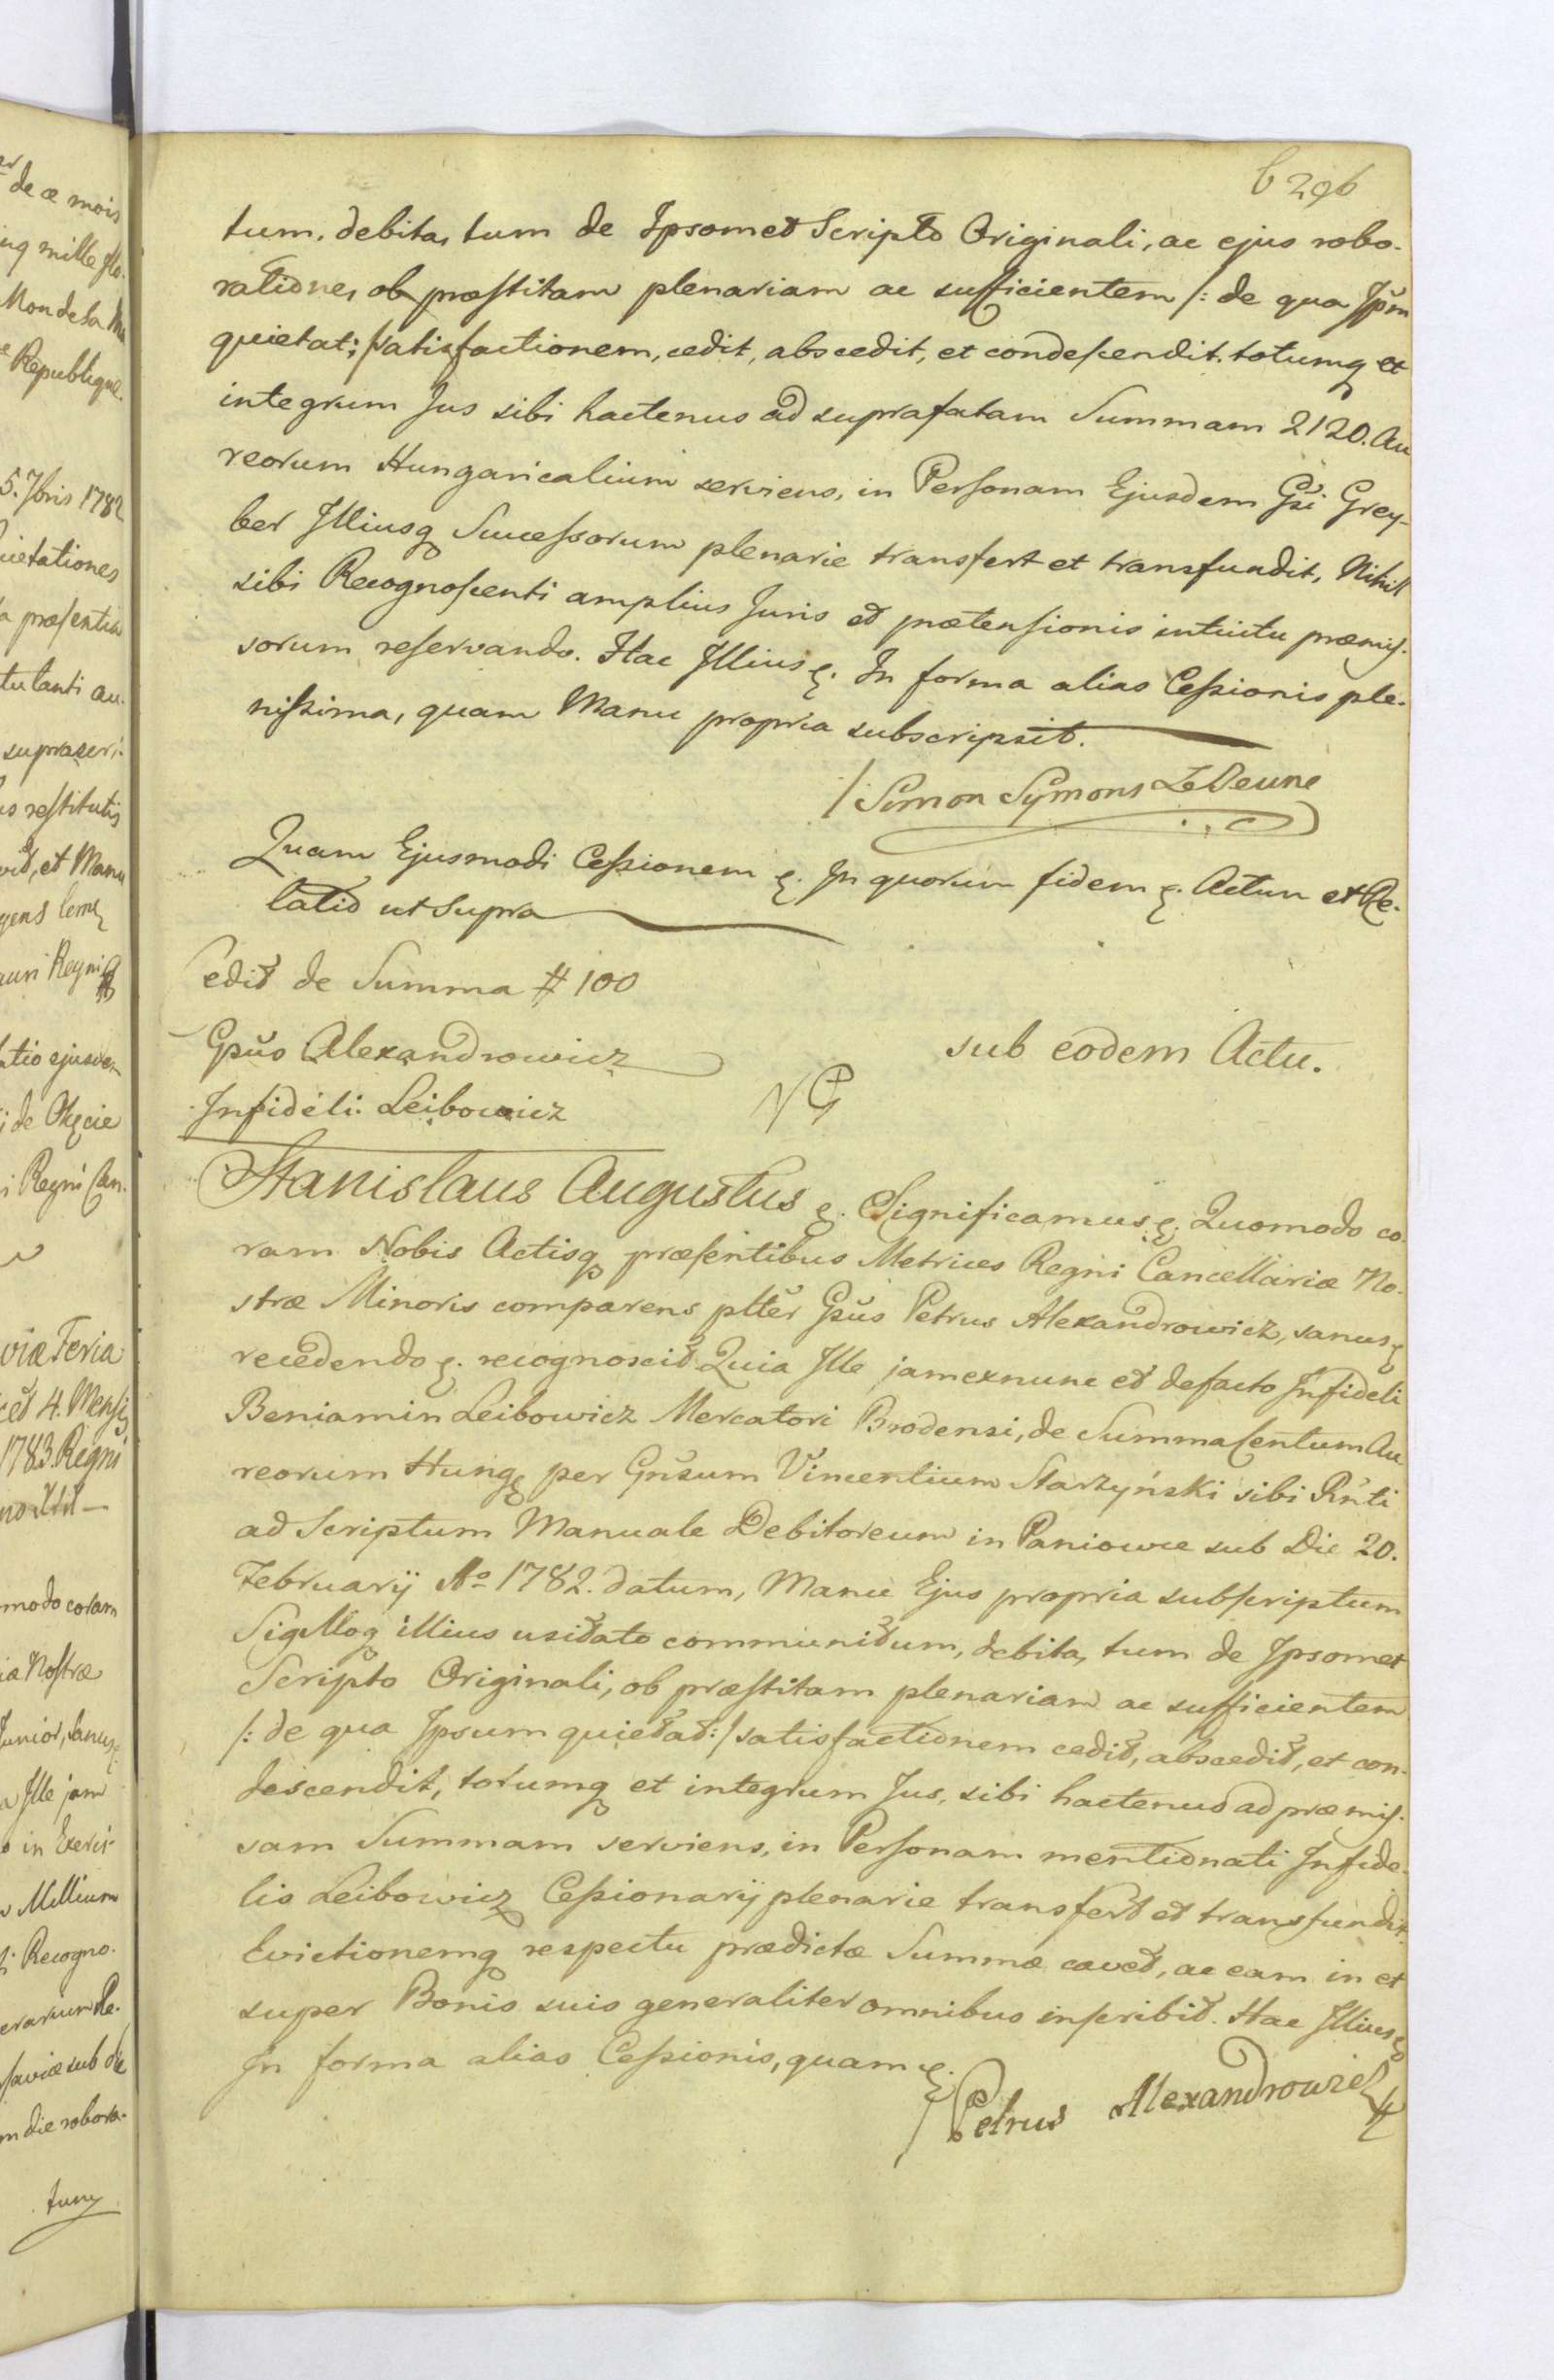 6 296
tum, debita, tum de Ipsomet Scripto Originali, ac ejus robo-
ratione, ob præstitam plenariam ac sufficientem /: de qua Ipm
quietat :/ satisfactionem, cedit, abscedit, et condescendit. totumq et
integrum Jus sibi hactenus ad suprafatam Summam 2120. Au
reorum Hungaricalium serviens, in Personam Ejusdem Gsi Grey-
ber Illiusq Successorum plenarie transfert et transfundit, Nihill
sibi Recognoscenti amplius Juris et prætensionis intuitu præmis-
sorum reservando. Hac Illius &. In forma alias Cessionis ple-
nissima, quam Manu propria subscripsit.
/ Simon Symons LeJeune
Quam Ejusmodi Cessionem &. In quorum fidem &. Actum et Re-
latio ut supra
Cedit de Summa # 100
Gsus Alexandrowicz
Infideli Leibowicz
sub eodem Actu.
Stanislaus Augustus &. Significamus &. Quomodo co-
ram Nobis Actisq præsentibus Metrices Regni Cancellariæ No-
stræ Minoris comparens plter Gsus Petrus Alexandrowicz, sanus &
recedendo &. recognoscit Quia Ille jamexnunc et defacto Infideli
Beniamin Leibowicz Mercatori Brodensi, de Summa Centum Au
reorum Hung per Gnsum Vincentium Starzyński sibi Rnti
ad Scriptum Manuale Debitoreum in Paniowce sub Die 20.
February Ao 1782. datum, Manu Ejus propria subscriptum
Sigilloq illius usitato communitum, debita, tum de Ipsomet
Scripto Originali, ob præstitam plenariam ac sufficientem
/: de qua Ipsum quietat :/ satisfactionem cedit, abscedit, et con-
descendit, totumq et integrum Jus, sibi hactenus ad præmis-
sam Summam serviens, in Personam mentionati Infide-
lis Leibowicz Cessionarij plenarie transfert et transfundit.
Evictionemq respectu prædictæ Summæ cavet, ac eam in et
super Bonis suis generaliter omnibus inscribit. Hac Illius &
In forma alias Cessionis, quam &.
/ Petrus Alexandrowicz